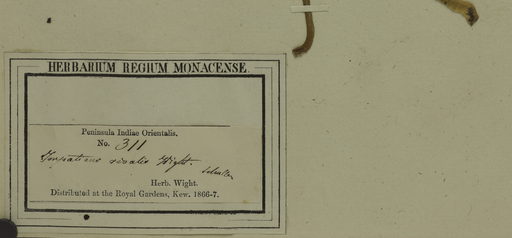 HERBARIUM REGIUM MONACENSE.
Peninsula Indiae Orientalis.
No. 311
Impatiens rivalis Wight.
Herb. Wight.
Distributed at the Royal Gardens, Kew. 1866-7.